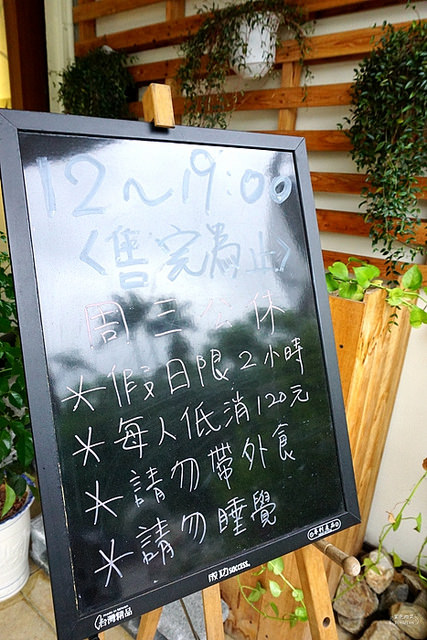 12～19:00
〈售完為止〉
周三公休
＊假日限2小時
＊每人低消120元
＊請勿帶外食
＊請勿睡覺
成功 success.
台灣精品